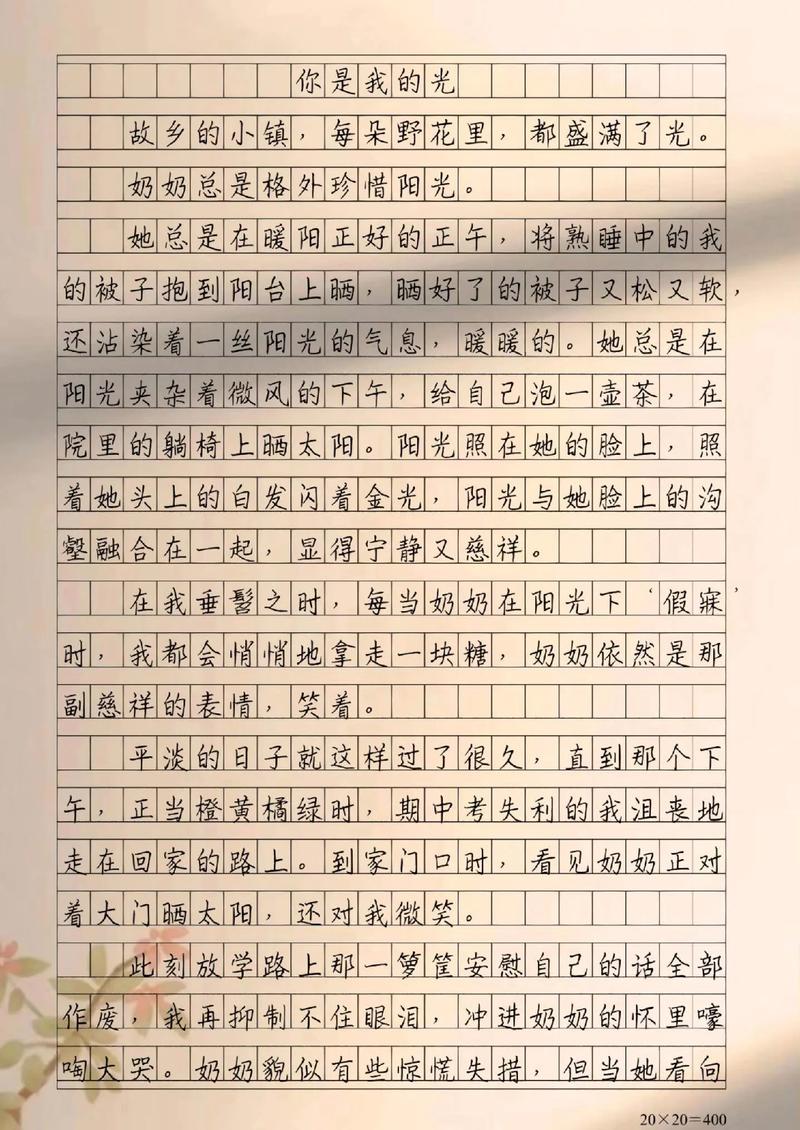 你是我的光
故乡的小镇，每朵野花里，都盛满了光。
奶奶总是格外珍惜阳光。
她总是在暖阳正好的正午，将熟睡中的我
的被子抱到阳台上晒，晒好了的被子又松又软，
还沾染着一丝阳光的气息，暖暖的。她总是在
阳光夹杂着微风的下午，给自己泡一壶茶，在
院里的躺椅上晒太阳。阳光照在她的脸上，照
着她头上的白发闪着金光，阳光与她脸上的沟
壑融合在一起，显得宁静又慈祥。
在我垂髫之时，每当奶奶在阳光下‘假寐’
时，我都会悄悄地拿走一块糖，奶奶依然是那
副慈祥的表情，笑着。
平淡的日子就这样过了很久，直到那个下
午，正当橙黄橘绿时，期中考失利的我沮丧地
走在回家的路上。到家门口时，看见奶奶正对
着大门晒太阳，还对我微笑。
此刻放学路上那一箩筐安慰自己的话全部
作废，我再抑制不住眼泪，冲进奶奶的怀里嚎
啕大哭。奶奶貌似有些惊慌失措，但当她看向
20×20=400